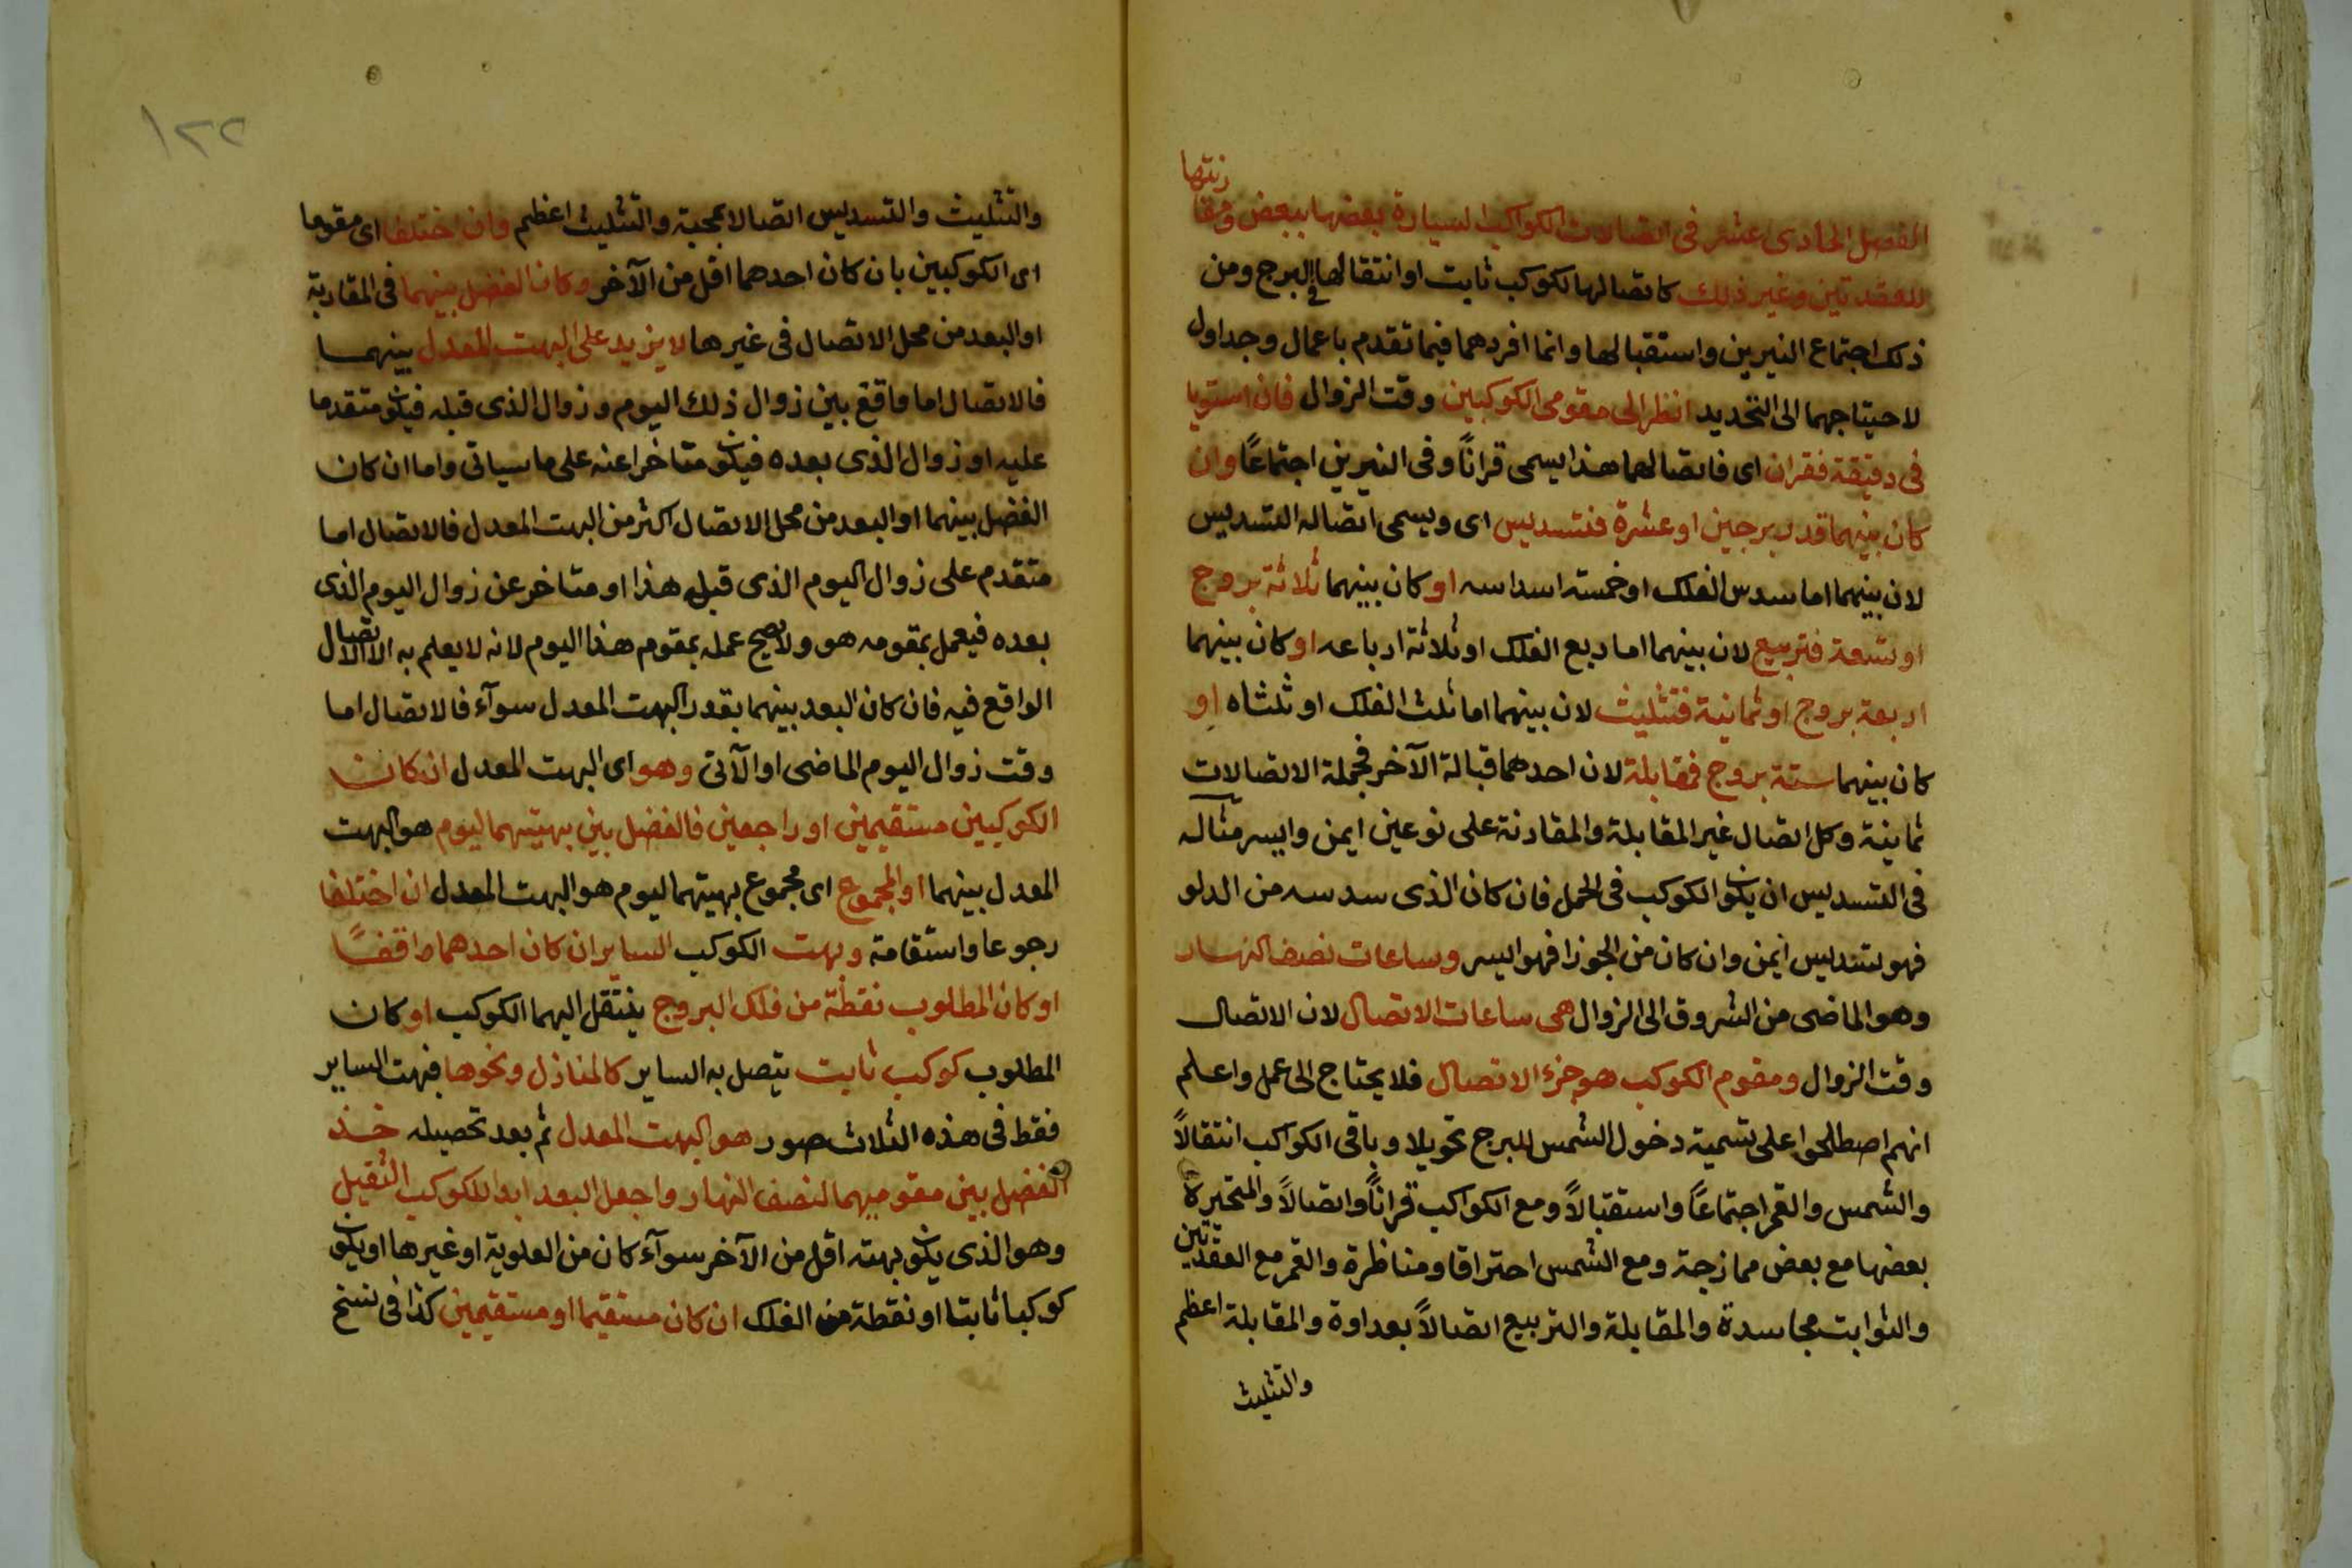 الفصل الحادى عشر فى اتصالات الكواكب السيارة بعضها ببعض ومقا
رنتها
للعقدتين وغير ذلك كاتصالها لكوكب ثابت او انتقالها الى البرج ومن
ذلك اجتماع النيرين واستقبالها وانما افردهما فيما تقدم باعمال وجداول
لاحتياجهما الى التحديد انظر الى مقومى الكوكبين وقت الزوال فان استويا
فى دقيقة فقران اى فاتصالهما هذا يسمى قرانًا وفى النيرين اجتماعًا وان
كان بينهما قدر برجين او عشرة فتسديس اى ويسمى اتصاله التسديس
لان بينهما اما سدس الفلك او خمسة اسداسه او كان بينهما ثلاثة بروج
او تسعة فتربيع لان بينهما اما ربع الفلك او ثلاثة ارباعه او كان بينهما
اربعة بروج او ثمانية فتثليث لان بينهما اما ثلث الفلك او ثلثاه او
كان بينهما ستة بروج فمقابلة لان احدهما قبالة الآخر فجملة الاتصالات
ثمانية وكل اتصال غير المقابلة والمقارنة على نوعين ايمن وايسر مثاله
فى التسديس ان يكون الكوكب فى الحمل فان كان الذى سدسه من الدلو
فهو تسديس ايمن وان كان من الجوزا فهو ايسر وساعات نصف النهار
وهو الماضى من الشروق الى الزوال هى ساعات الاتصال لان الاتصال
وقت الزوال ومقوم الكوكب هو جزء الاتصال فلا يحتاج الى عمل واعلم
انهم اصطلحوا على تسمية دخول الشمس للبرج تحويلا وباقى الكواكب انتقالاً
والشمس والقمر اجتماعًا واستقبالاً ومع الكواكب قرانًا واتصالاً والمتحيرة
بعضها مع بعض ممازجة ومع الشمس احتراقا ومناظرة والقمر مع العقدتين
والثوابت مجاسدة والمقابلة والتربيع اتصالاً بعداوة والمقابلة اعظم
والتثليث
١٢٢
والتثليث والتسديس اتصالا بمحبة والتثليث اعظم وان اختلفا اى مقوما
اى الكوكبين بان كان احدهما اقل من الآخر وكان الفضل بينهما فى المقاربة
او البعد من محل الاتصال فى غيرها لا يزيد على البهت المعدل بينهما
فالاتصال اما واقع بين زوال ذلك اليوم وزوال الذى قبله فيكون متقدما
عليه او زوال الذى بعده فيكون متاخرا عنه على ما سياتى واما ان كان
الفضل بينهما او البعد من محل الاتصال اكثر من البهت المعدل فالاتصال اما
متقدم على زوال اليوم الذى قبل هذا او متاخر عن زوال اليوم الذى
بعده فيعمل بمقومه هو ولا يصح عمله بمقوم هذا اليوم لانه لا يعلم به الا الاتصال
الواقع فيه فان كان البعد بينهما بقدر البهت المعدل سوآء فالاتصال اما
وقت زوال اليوم الماضى او الآتى وهو اى البهت المعدل ان كان
الكوكبين مستقيمين او راجعين فالفضل بين بهتيهما ليوم هو البهت
المعدل بينهما او المجموع اى مجموع بهتيهما ليوم هو البهت المعدل ان اختلفا
رجوعا واستقامة وبهت الكوكب الساير ان كان احدهما واقفًا
او كان المطلوب نقطة من فلك البروج ينتقل اليهما الكوكب او كان
المطلوب كوكب ثابت يتصل به الساير كالمنازل ونحوها فبهت الساير
فقط فى هذه الثلاث صور هو البهت المعدل ثم بعد تحصيله خذ
الفضل بين مقوميهما لنصف النهار واجعل البعد ابدا للكوكب الثقيل
وهو الذى يكون بهته اقل من الآخر سوآء كان من العلوية او غيرها او يكون
كوكبا ثابتا او نقطة من الفلك ان كان مستقيما او مستقيمين كذا فى نسخ